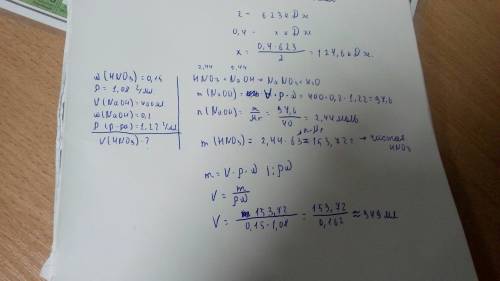 2 - 623 кДж
0,4 - x кДж
x = 0,4·623 / 2 = 124,6 кДж.
ω(HNO3) = 0,15
ρ = 1,08 г/мл
V(NaOH) = 400 мл
ω(NaOH) = 0,2
ρ(р-ра) = 1,22 г/мл
V(HNO3) - ?
2,44 2,44
HNO3 + NaOH = NaNO3 + H2O
m(NaOH) = V·ρ·ω = 400·0,2·1,22 = 97,6
n(NaOH) = m/Mr = 97,6/40 = 2,44 моль
n·Mr
m(HNO3) = 2,44·63 = 153,72г → чистая HNO3
m = V·ρ·ω |:ρω
V = m/ρω
V = 153,72 / 0,15·1,08 = 153,72 / 0,162 ≈ 949 мл